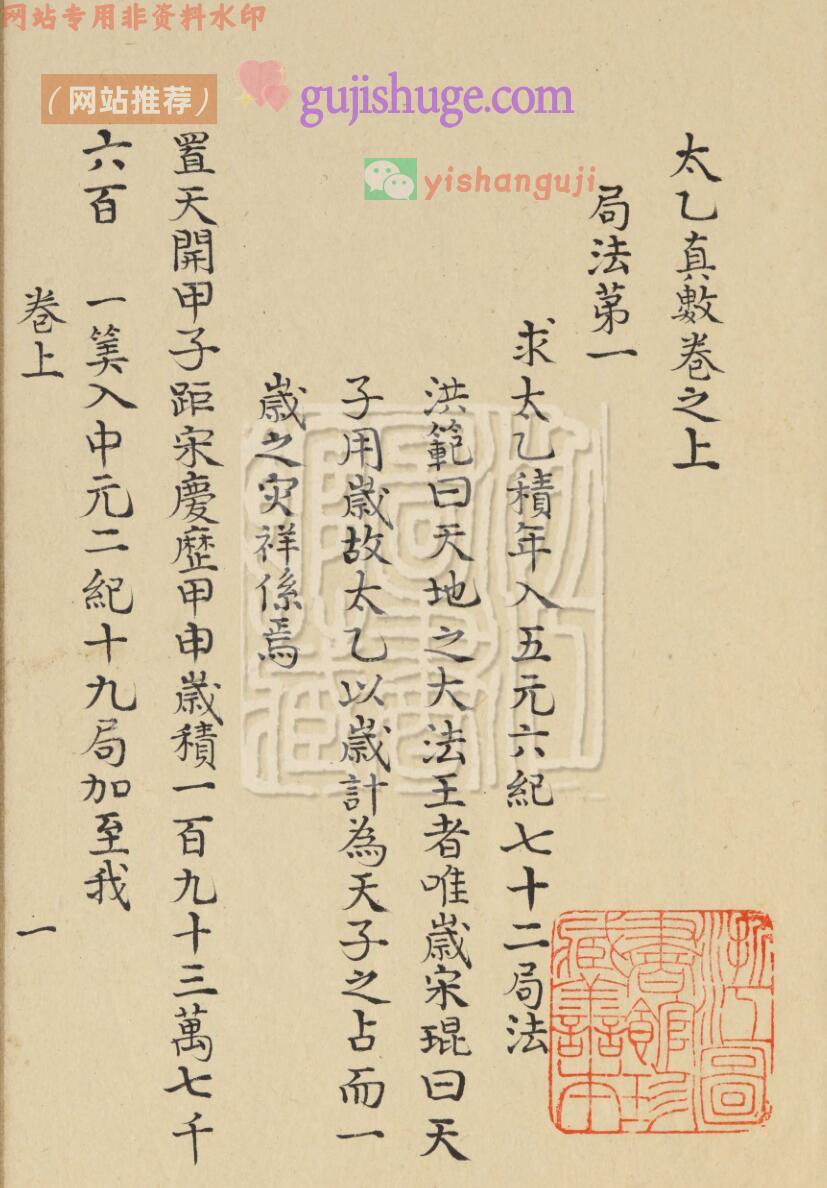 网站专用非资料水印
(网站推荐)
gujishuge.com
yishanguji
太乙真數卷之上
局法第一
求太乙積年入五元六紀七十二局法
洪範曰天地之大法王者唯歲宋琨曰天
子用歲故太乙以歲計為天子之占而一
歲之灾祥係焉
置天開甲子距宋慶歷甲申歲積一百九十三萬七千
六百 一筭入中元二紀十九局加至我
卷上 一
浙江圖
書館珍
藏善本